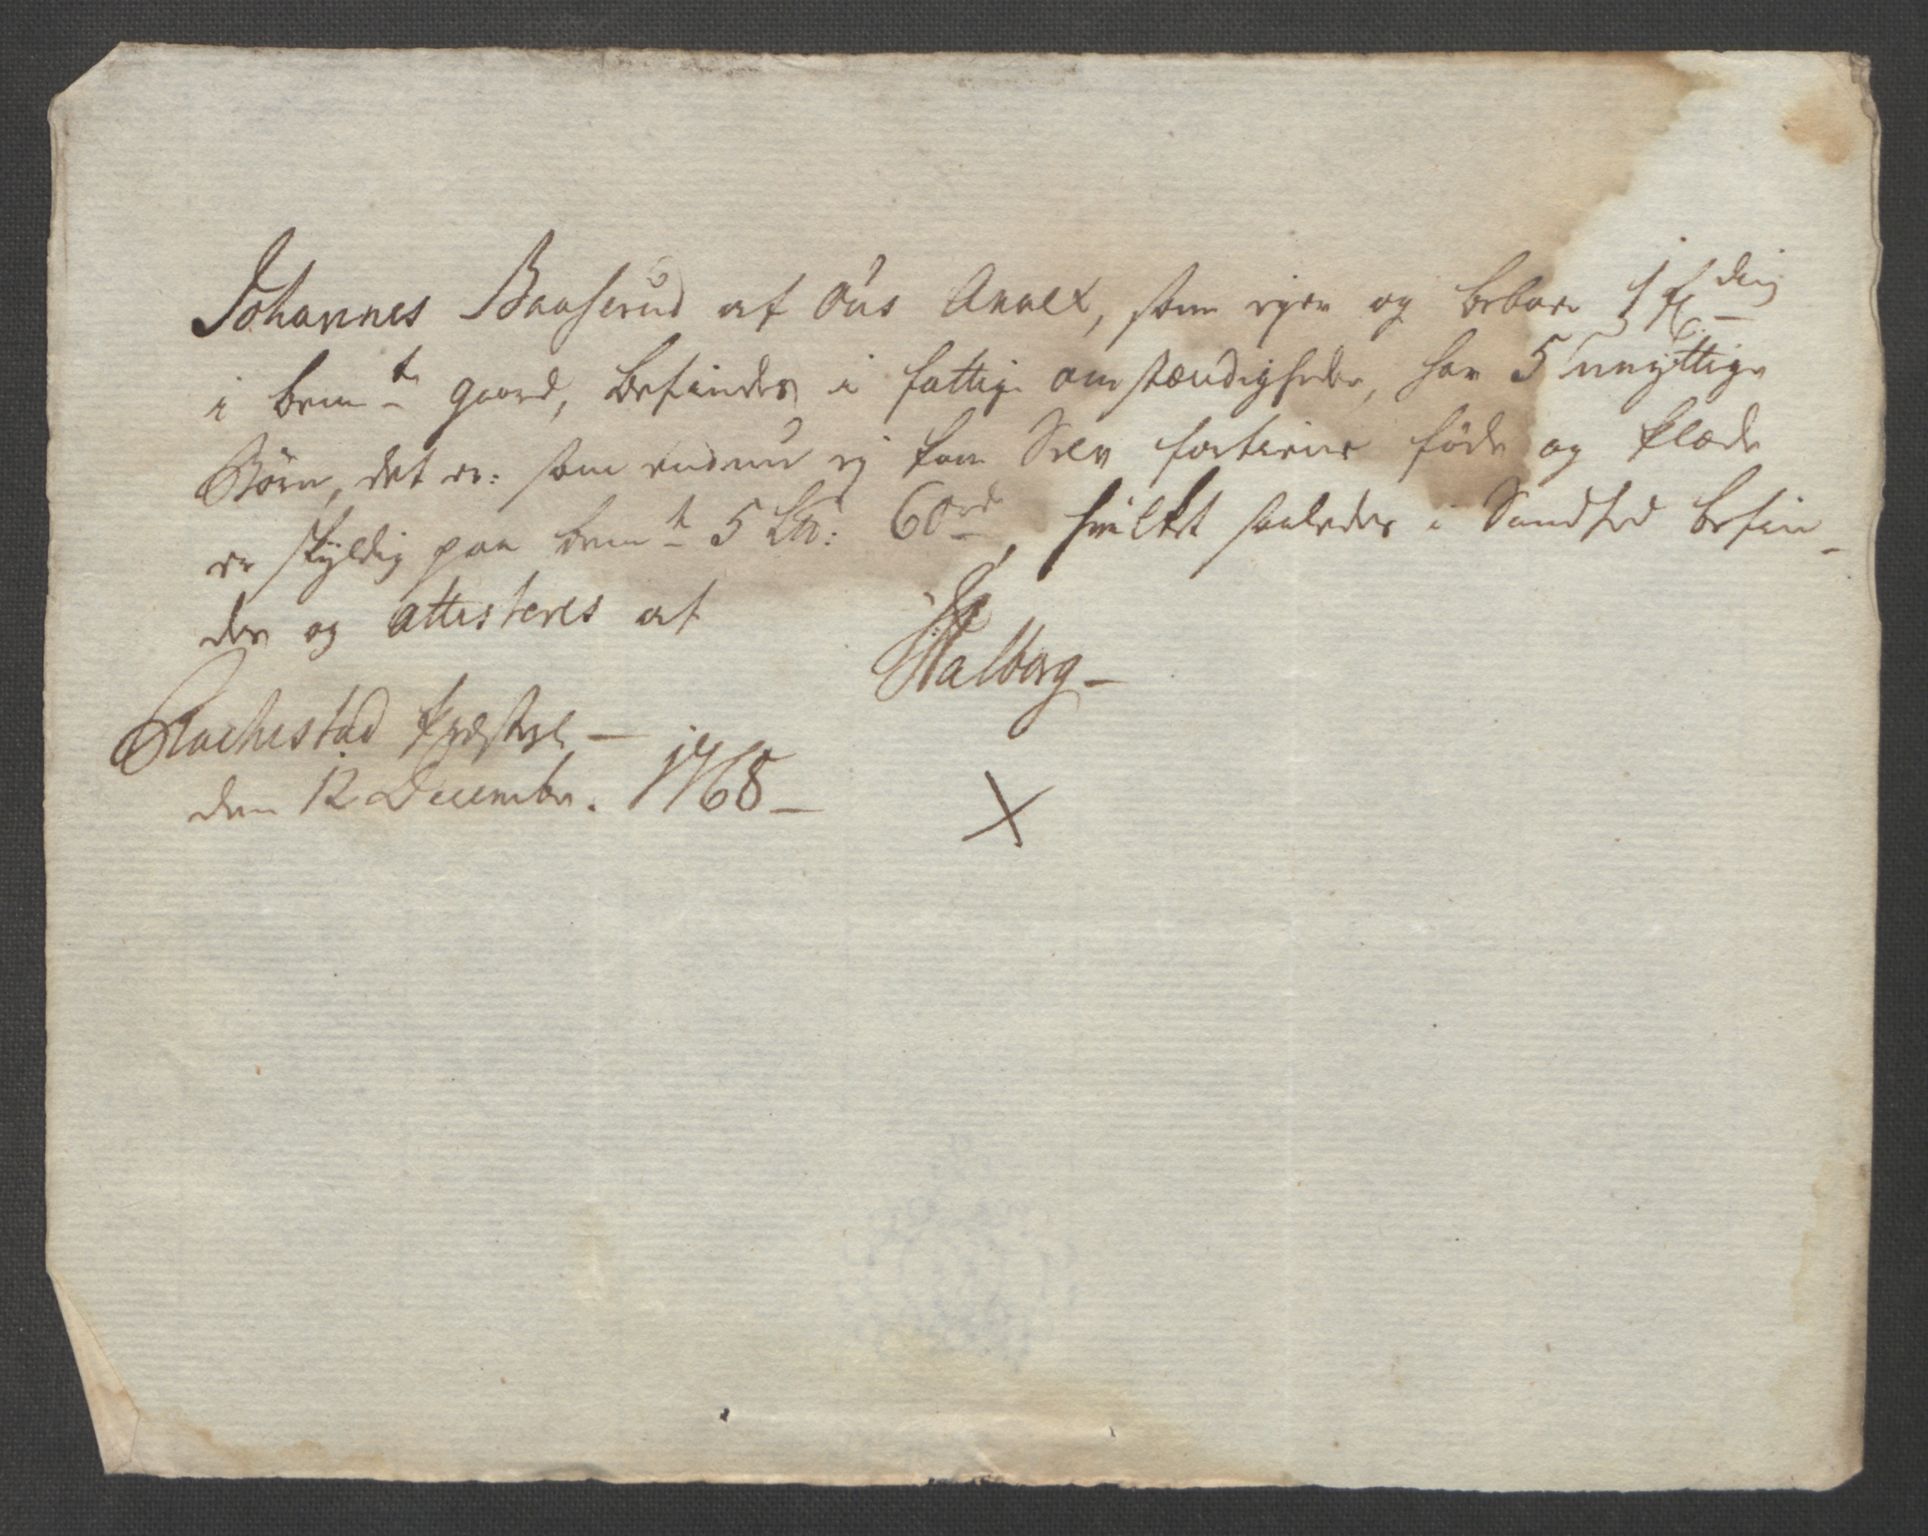 Johannes Baaserud af Øus Annex, som ejer og beboer 1 fding
i bemte gaard, befindes i fattige omstændigheder, har 5 unyttige
Børn, det er: som endnu ej kan Selv fortiene føde og klæde
er skyldig paa bemte 5 60rd, hvilket saaledes i Sandhed befin-
des og attesteres af Walborg-
Rachestad Præstgl-
den 12 Decembr. 1768-
X